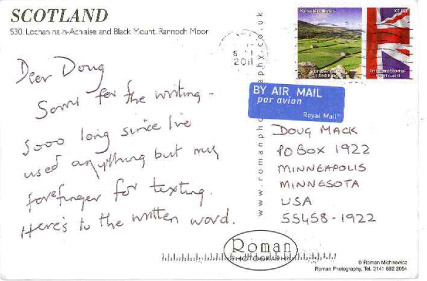 SCOTLAND
S30. Lochan na h-Achlaise and Black Mount, Rannoch Moor
Dear Doug
Sorry for the writing -
Sooo long since I've
used anything but my
forefinger for texting.
Here's to the written word.
2011
BY AIR MAIL
par avion
Royal Mail
DOUG MACK
PO BOX 1922
MINNEAPOLIS
MINNESOTA
USA
55458-1922
Roman
© Roman Michnowicz
Roman Photography, Tel. 0141 882 2054